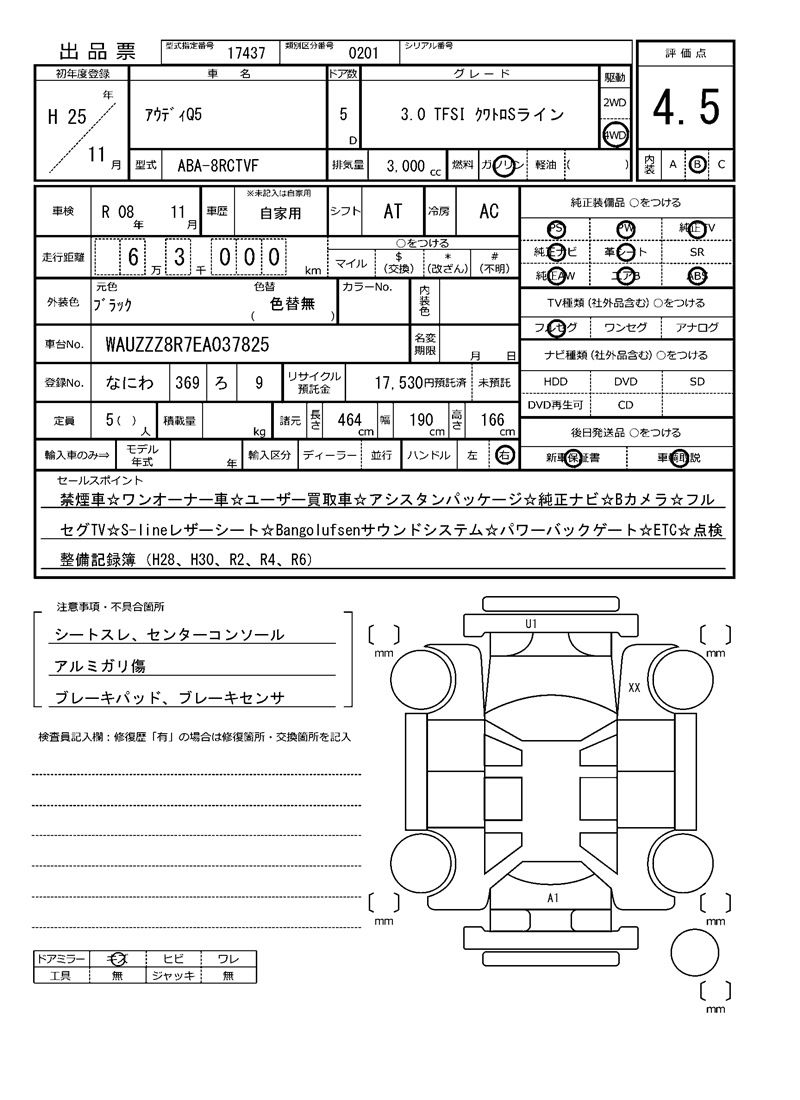 出品票 型式指定番号 17437 類別区分番号 0201 シリアル番号 評価点
初年度登録 車名 ドア数 グレード 駆動
H 25 年 11 月 アウディQ5 5 D 3.0 TFSI クワトロSライン 2WD 4WD 4.5
型式 ABA-8RCTVF 排気量 3,000 cc 燃料 ガソリン 軽油 ( ) 内装 A B C
車検 R 08 年 11 月 車歴 ※未記入は自家用 自家用 シフト AT 冷房 AC
純正装備品 ○をつける
PS PW 純正TV
純正ナビ 革シート SR
純正AW エアB ABS
走行距離 6 万 3 千 0 0 0 km ○をつける
マイル $ (交換) * (改ざん) # (不明)
外装色 元色 ブラック 色替 色替無 ( ) カラーNo. 内装色
TV種類 (社外品含む) ○をつける
フルセグ ワンセグ アナログ
車台No. WAUZZZ8R7EA037825 名変期限 月 日
ナビ種類 (社外品含む) ○をつける
HDD DVD SD
DVD再生可 CD
登録No. なにわ 369 ろ 9 リサイクル預託金 17,530円預託済 未預託
定員 5 ( ) 人 積載量 kg 諸元 長さ 464 cm 幅 190 cm 高さ 166 cm
後日発送品 ○をつける
新車保証書 車輌取説
輸入車のみ⇒ モデル年式 年 輸入区分 ディーラー 並行 ハンドル 左 右
セールスポイント
禁煙車☆ワンオーナー車☆ユーザー買取車☆アシスタンパッケージ☆純正ナビ☆Bカメラ☆フル
セグTV☆S-lineレザーシート☆Bangolufsenサウンドシステム☆パワーバックゲート☆ETC☆点検
整備記録簿 (H28、H30、R2、R4、R6)
注意事項・不具合箇所
シートスレ、センターコンソール
アルミガリ傷
ブレーキパッド、ブレーキセンサ
検査員記入欄：修復歴「有」の場合は修復箇所・交換箇所を記入
U1
mm mm
XX
A1
mm mm
mm
ドアミラー キズ ヒビ ワレ
工具 無 ジャッキ 無